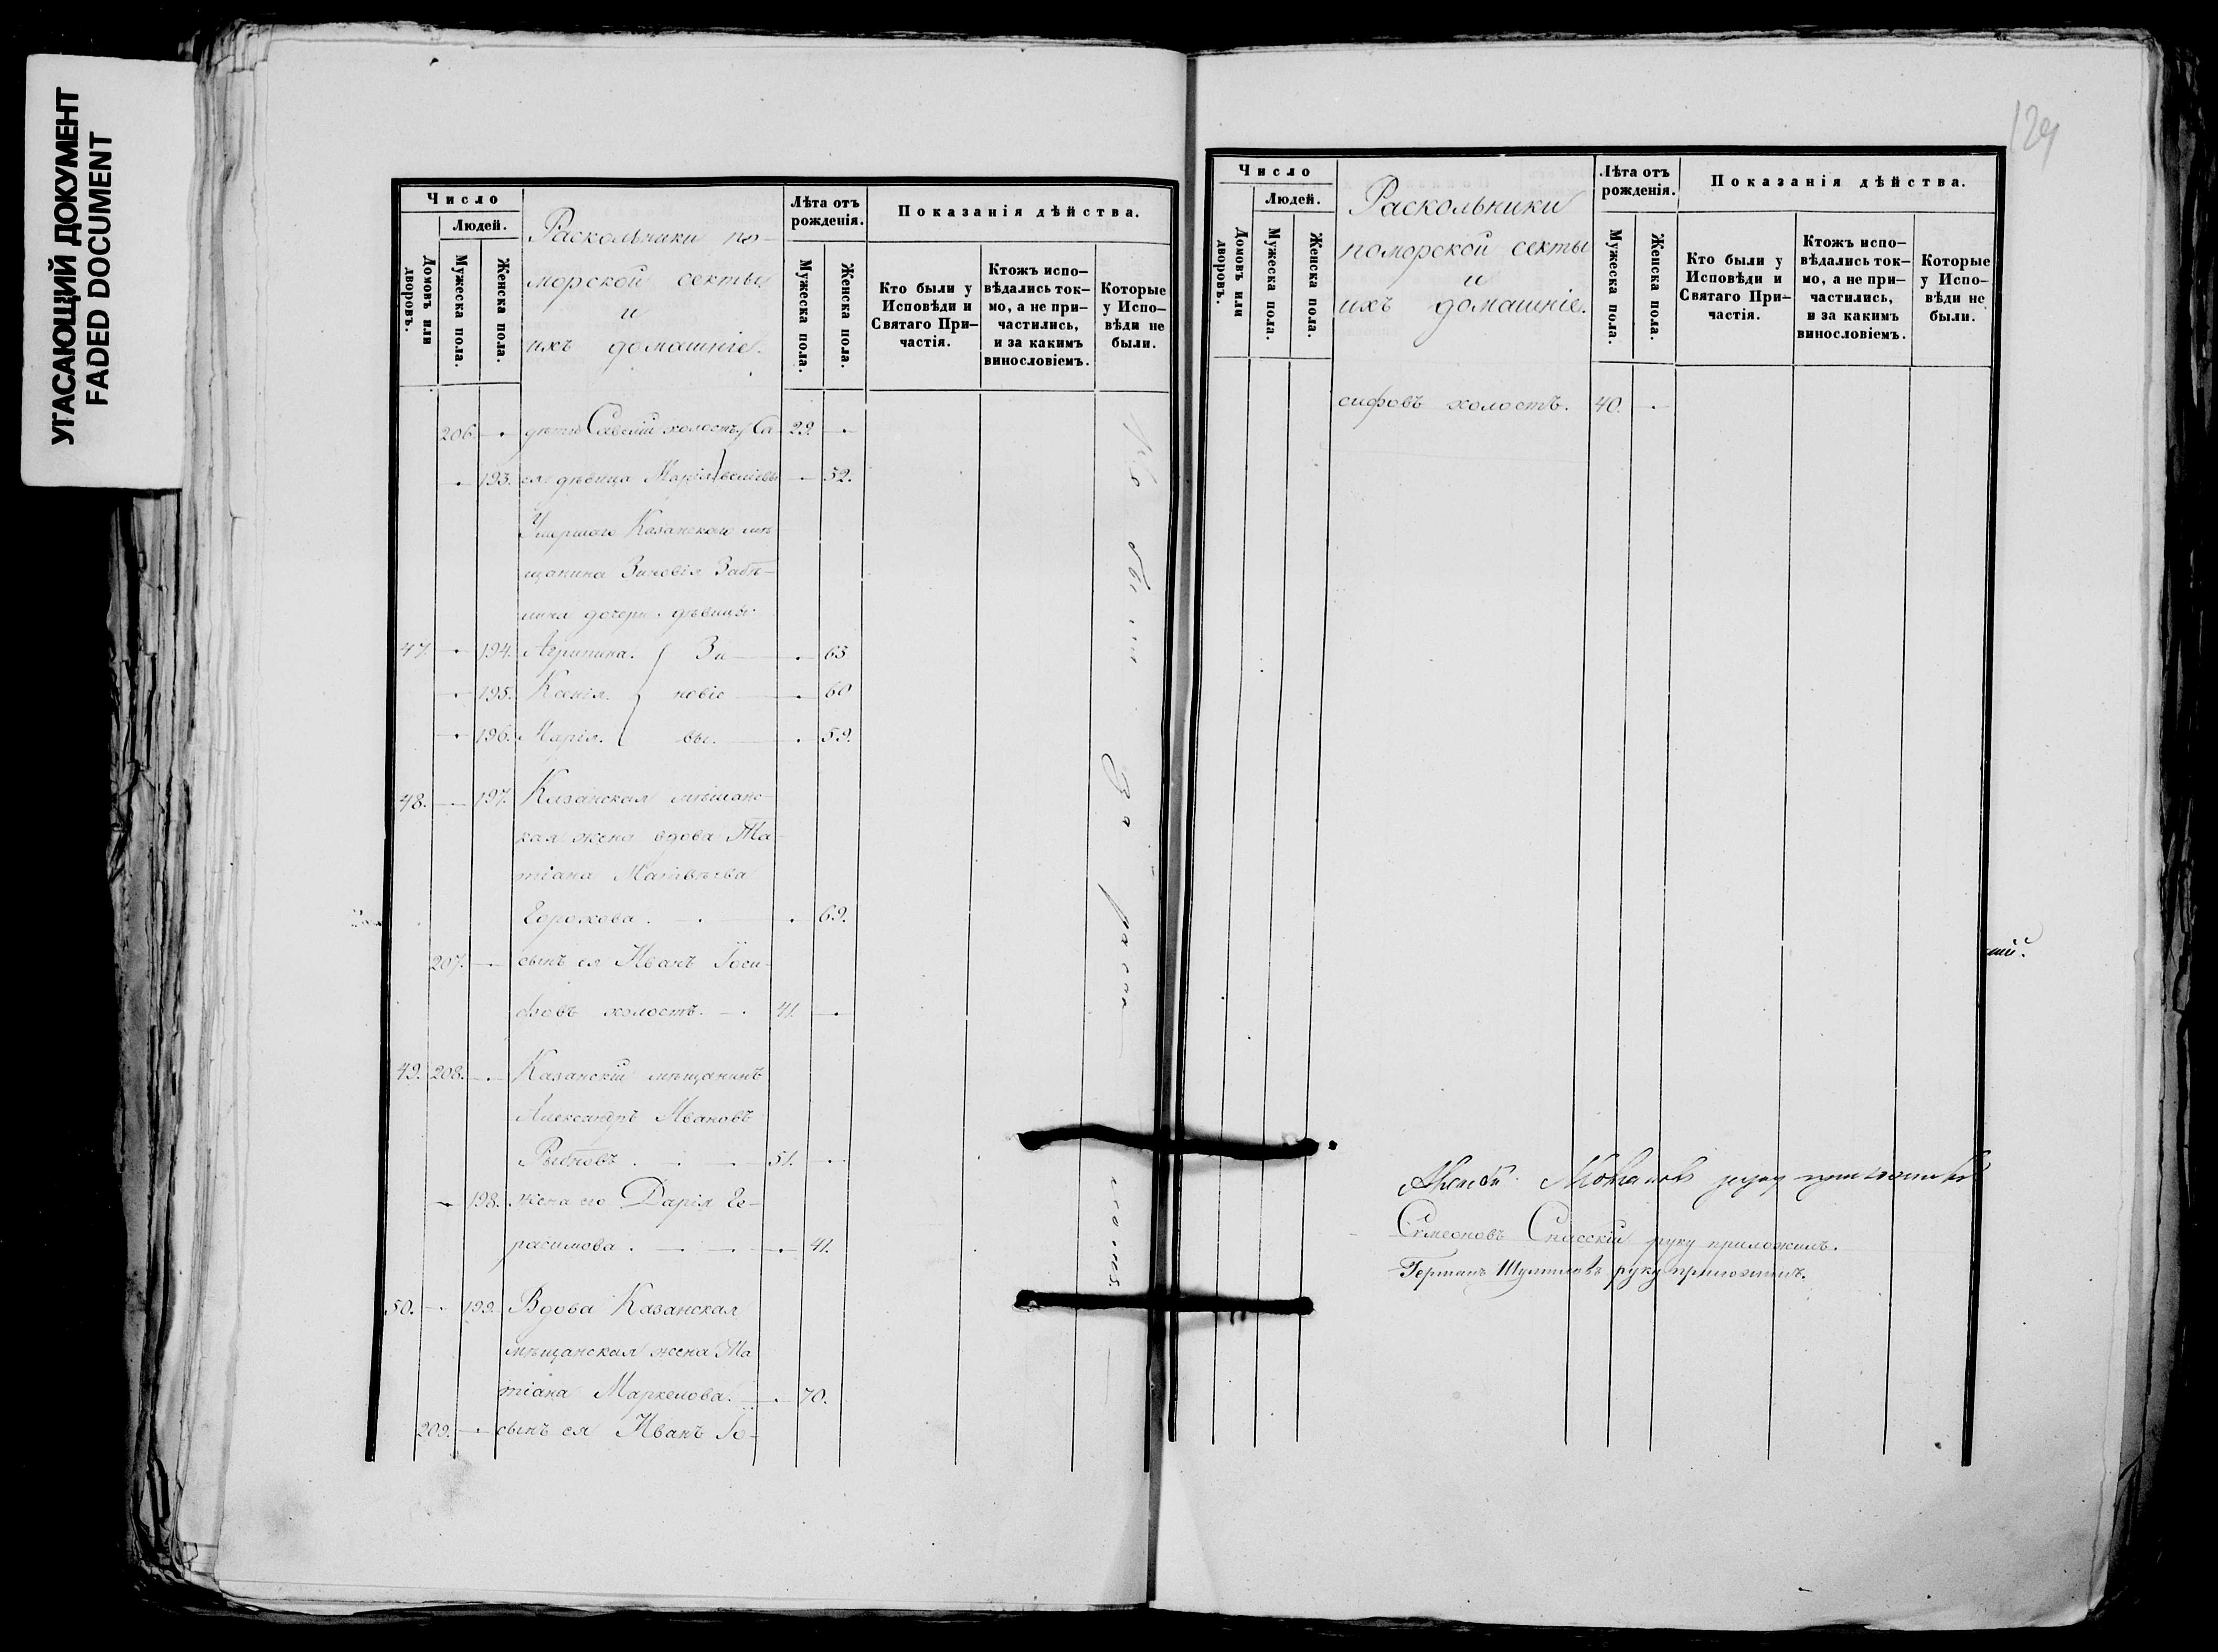 УГАСАЮЩИЙ ДОКУМЕНТ
FADED DOCUMENT
Число
Людей.
Домовъ или дворовъ.
Мужеска пола.
Женска пола.
Раскольники по-
морской секты
и
ихъ домашніе.
Лѣта отъ рожденія.
Мужеска пола.
Женска пола.
Показанія дѣйства.
Кто были у Исповѣди и Святаго При-частія.
Ктожъ испо-вѣдались ток-мо, а не при-частились, и за какимъ винословіемъ.
Которые у Испо-вѣди не были.
206. дѣти Савелій холостъ Са- 29.
193. ея дѣвица Марія велиевы 52.
Умершаго Казанскаго мѣ-
щанина Зиновія
дочери дѣвицы
47. 194. Агрипина. Зи- 63
195. Ксенія. новіе 60
196. Марія. вы. 59.
48. 197. Казанская мѣщанс-
кая жена вдова Та-
тіана Матвѣева
Горохова. 69.
207. сынъ ея Иванъ Іоси-
фовъ холостъ. 41.
49. 208. Казанскій мѣщанинъ
Александръ Ивановъ
51.
198. жена его Дарія Ге-
расимова. 41.
50. 199. Вдова Казанская
мѣщанская жена Та
тіана Маркелова. 70.
209. сынъ ея Иванъ Іо-
Не были за раско
ломъ
129
Число
Людей.
Домовъ или дворовъ.
Мужеска пола.
Женска пола.
Раскольники
поморской секты
и
ихъ домашніе.
Лѣта отъ рожденія.
Мужеска пола.
Женска пола.
Показанія дѣйства.
Кто были у Исповѣди и Святаго При-частія.
Ктожъ испо-вѣдались ток-мо, а не при-частились, и за какимъ винословіемъ.
Которые у Испо-вѣди не были.
сифовъ холостъ. 40.
руку приложилъ
Симеоновъ Спасскій руку приложилъ.
Германъ Шумиловъ руку приложилъ.